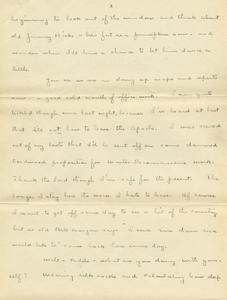 beginning to look out of the window and think about
old Jimmy Hicks - has just as a now - and
wonder when I'll have a chance to let him have a
little.
You see we are in doing up maps and reports
now - a good solid month of office work. I am quite
tickled though some last night, because I've heard at last
that I'll not have to leave the Capital. I was scared
out of my boots that I'd be sent off on some damned
proposition for months Reconnaissance work.
Thank the Lord though I'm safe for the present. The
longer I stay here the worse I hate to leave. Of course
I want to get off some day to see a lot of the country
but as old Bill says I sure
would like to come back here some day.
Well - Kiddo - what are you doing with your-
self? Wearing silk socks and how deep